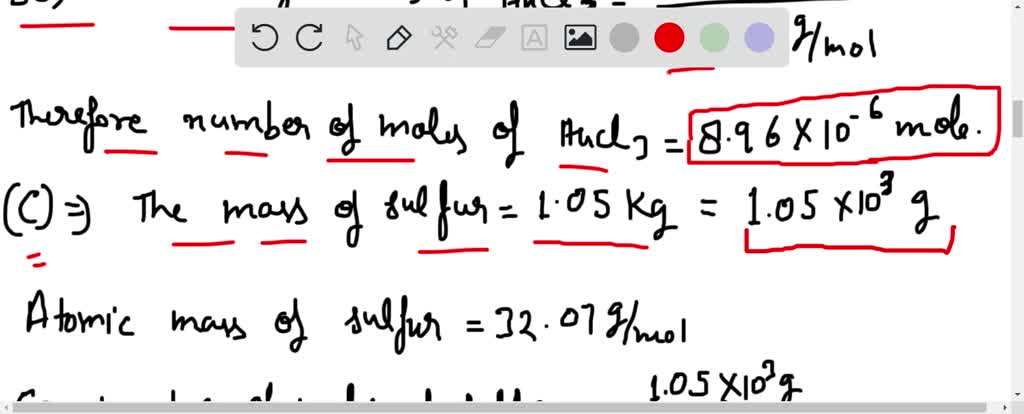 AuCl3 =
g/mol
A
Therefore number of moles of AuCl3 = 8.96 X 10^-6 mole.
(C) ⇒ The mass of sulfur = 1.05 Kg = 1.05 X 10^3 g
Atomic mass of sulfur = 32.07 g/mol
1.05 X 10^3 g